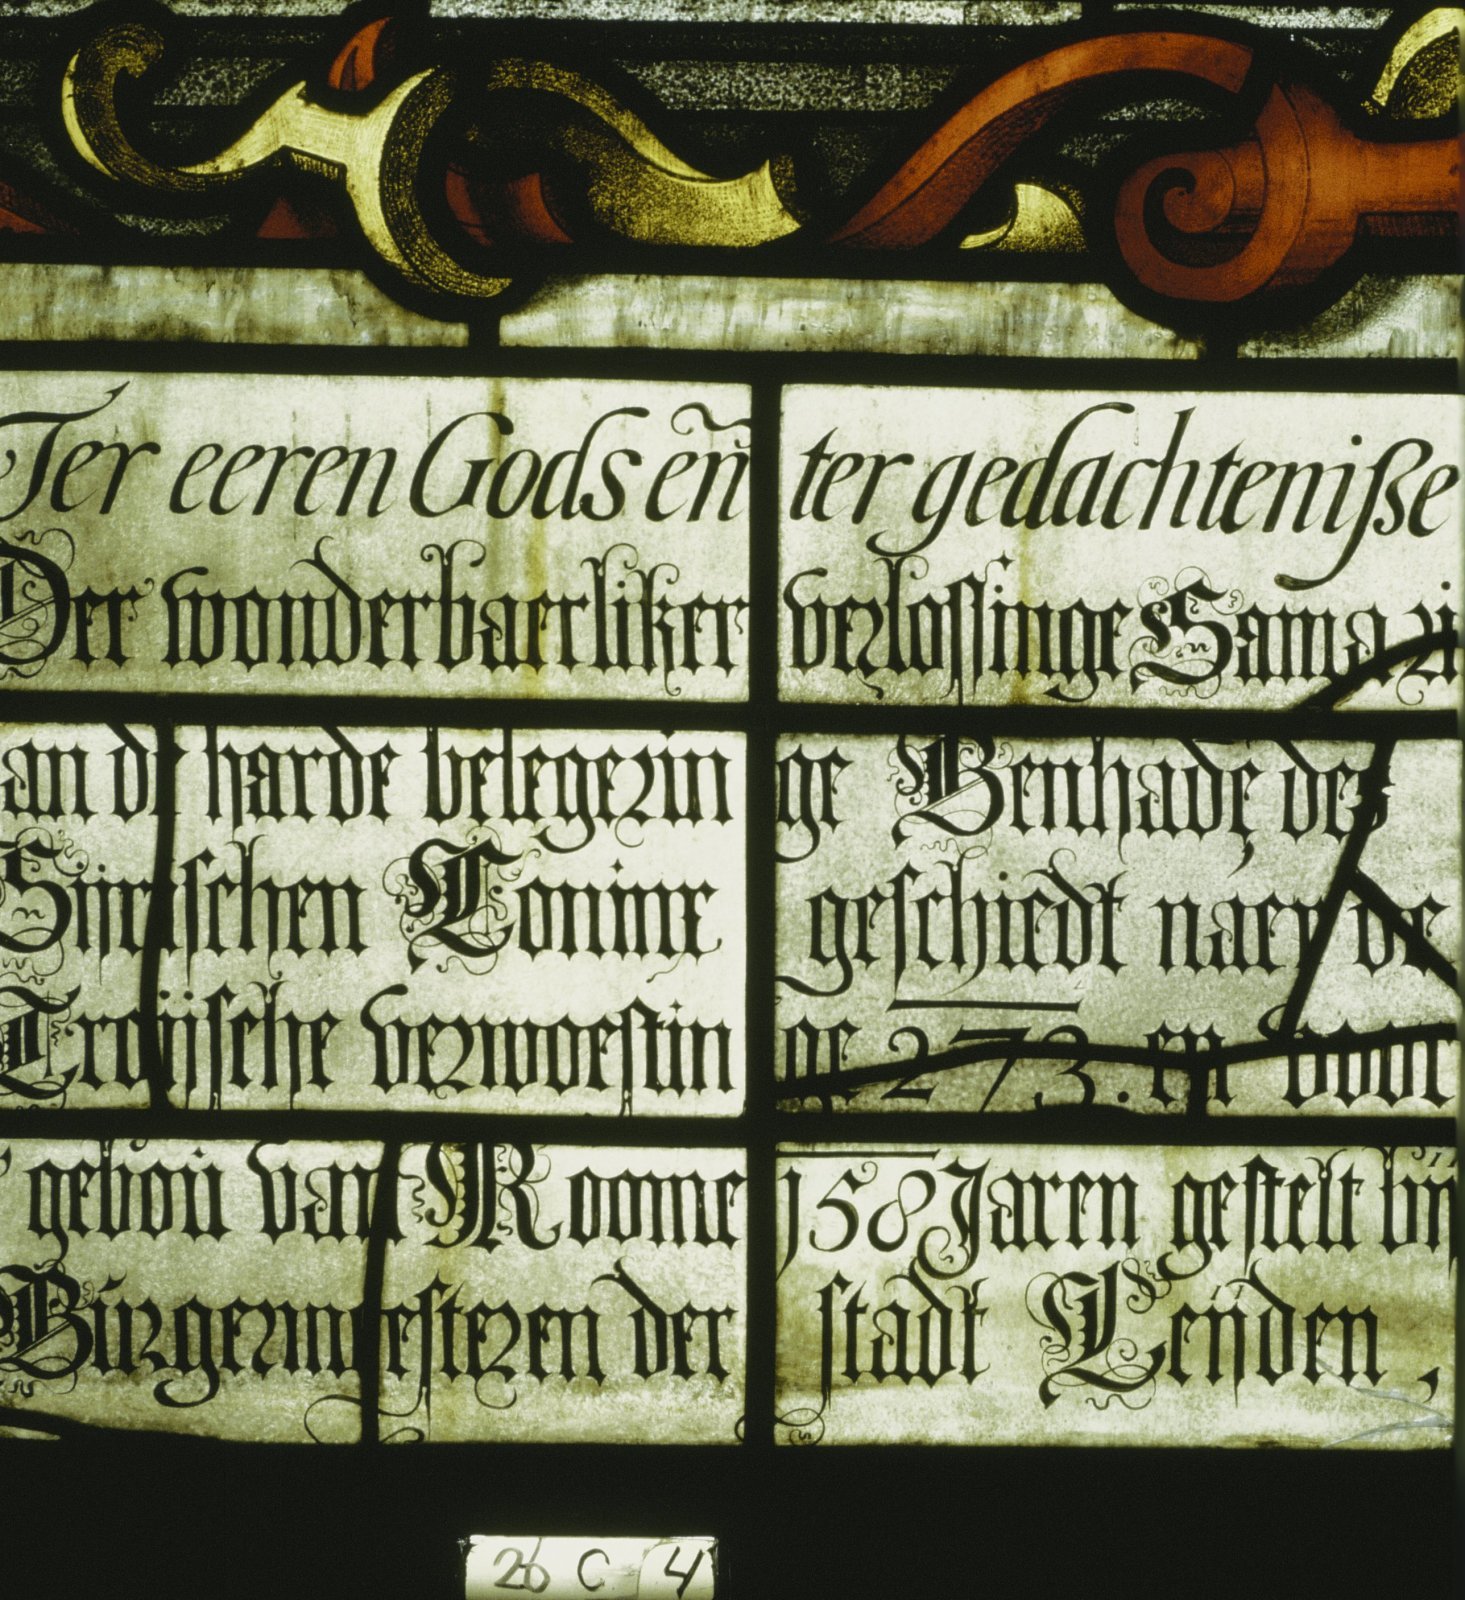 Ter eeren Gods eñ ter gedachteniße
Der wonderbaerliker verlossinge Samari
an de harde belegerin ge Benhadę des
Siirischen Coninx geschiedt naer de
Troijsche verwoestin ge 273. en voor
gebou van Roome 158 Jaren gestelt bij
Burgermeesteren der stadt Leijden,
26 C 4